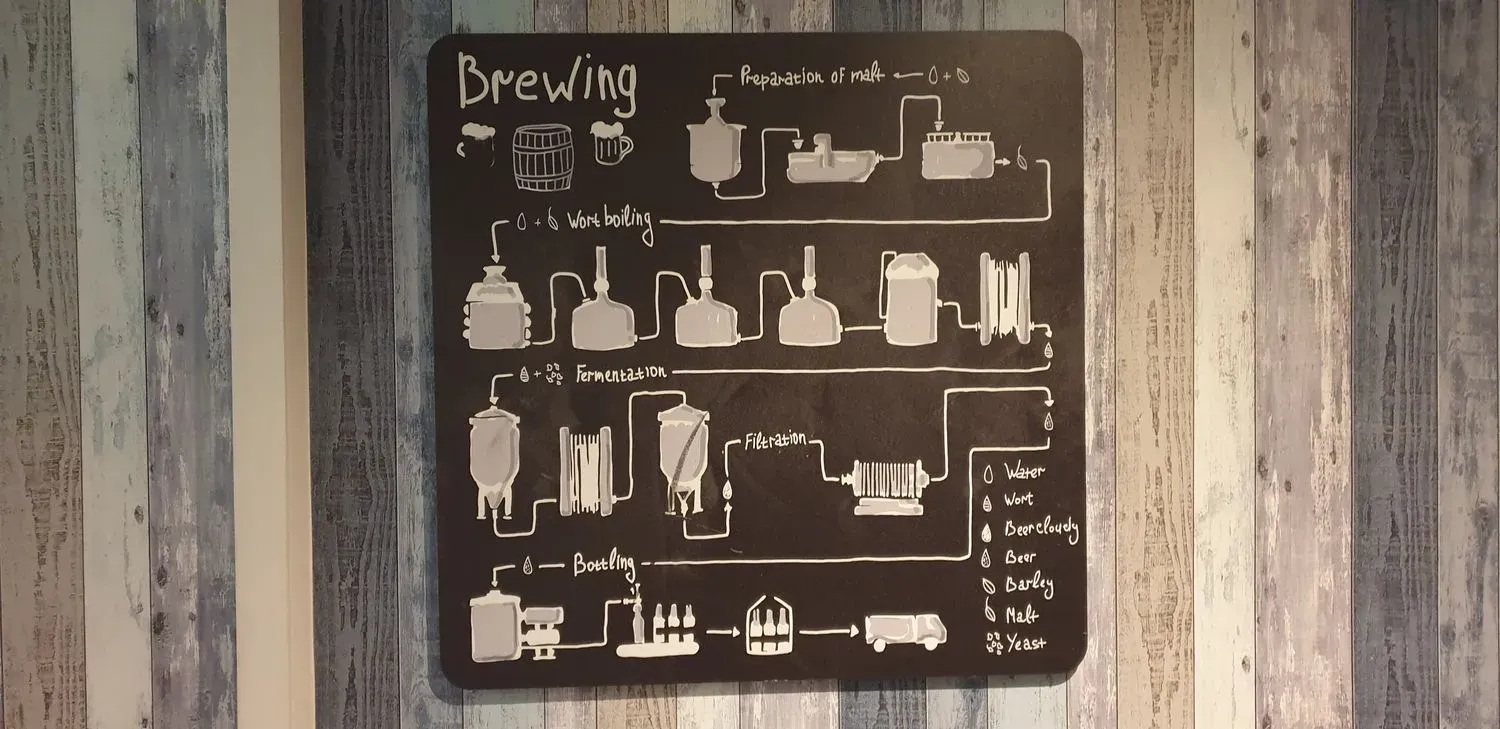 Brewing
Preparation of malt
+
+ Wort boiling
+ Fermentation
Filtration
Bottling
Water
Wort
Beer cloudy
Beer
Barley
Malt
Yeast